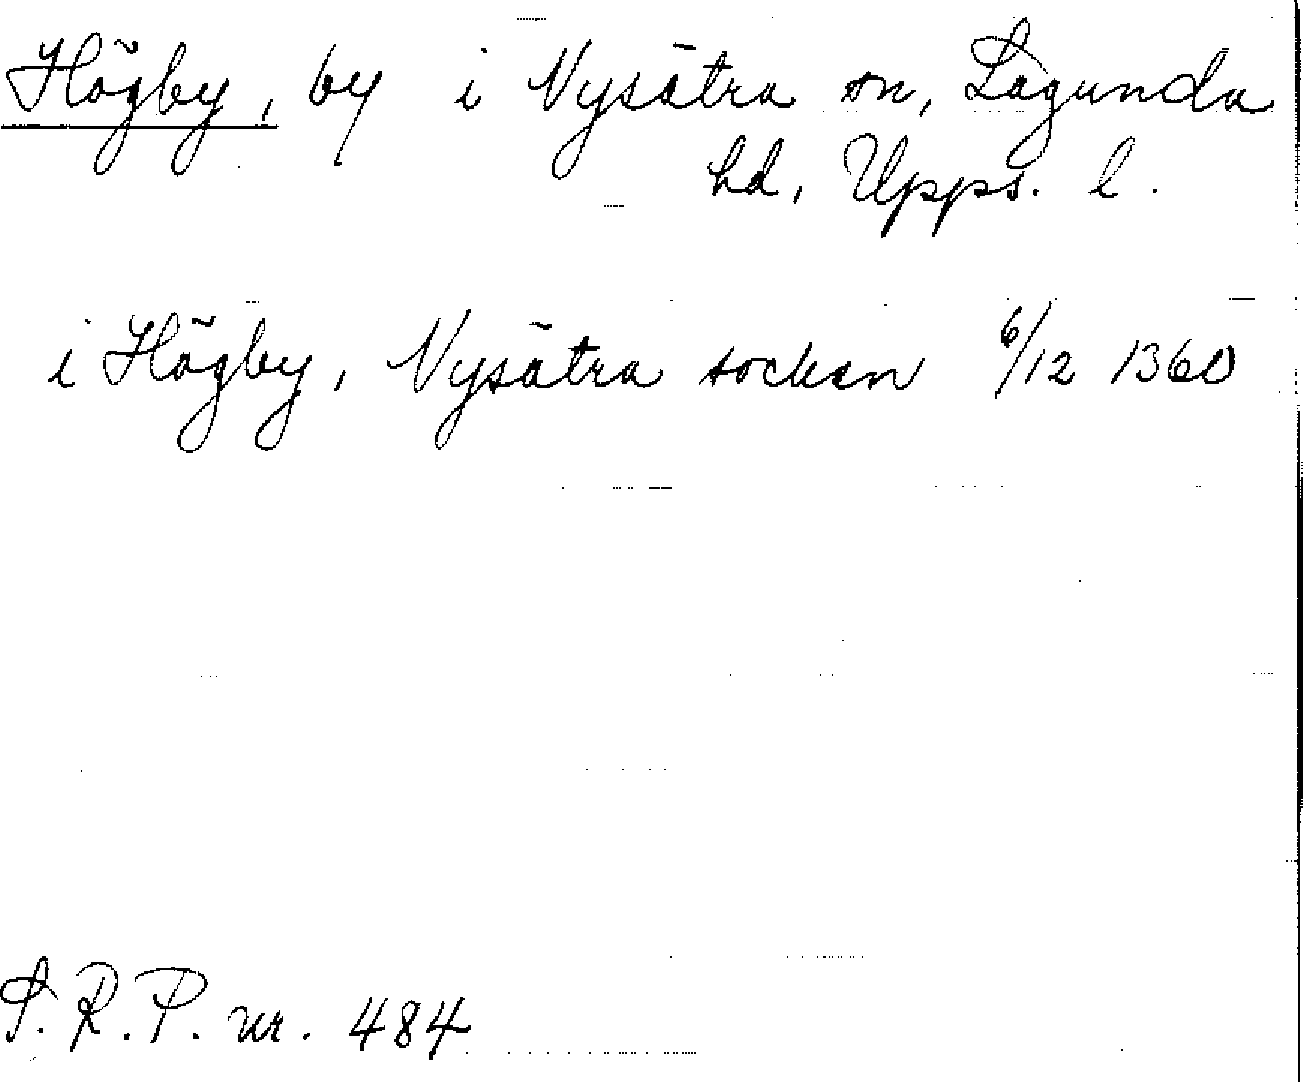 Högby, by i Nysätra sn, Lagunda
hd, Upps. l.
i Högby, Nysätra socken 6/12 1360
S.R.P. nr. 484